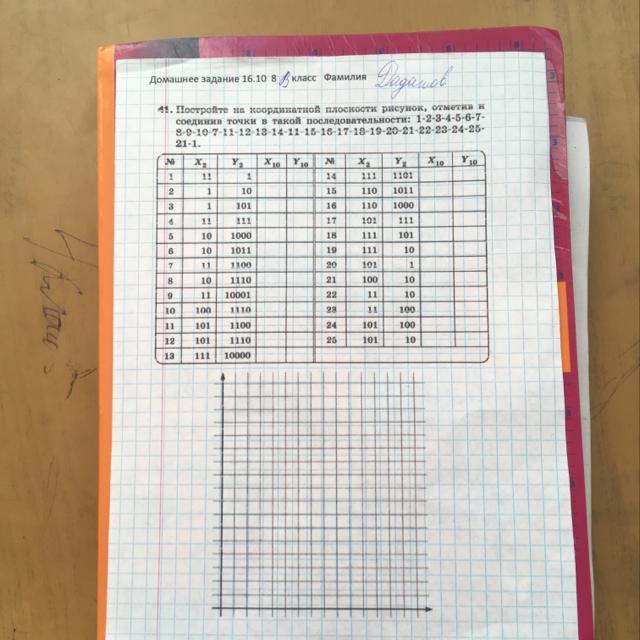 Домашнее задание 16.10 8 В класс Фамилия Дадашов
41. Постройте на координатной плоскости рисунок, отметив и
соединив точки в такой последовательности: 1-2-3-4-5-6-7-
8-9-10-7-11-12-13-14-11-15-16-17-18-19-20-21-22-23-24-25-
21-1.
№ X2 Y2 X10 Y10 № X2 Y2 X10 Y10
1 11 1 14 111 1101
2 1 10 15 110 1011
3 1 101 16 110 1000
4 11 111 17 101 111
5 10 1000 18 111 101
6 10 1011 19 111 10
7 11 1100 20 101 1
8 10 1110 21 100 10
9 11 10001 22 11 10
10 100 1110 23 11 100
11 101 1100 24 101 100
12 101 1110 25 101 10
13 111 10000